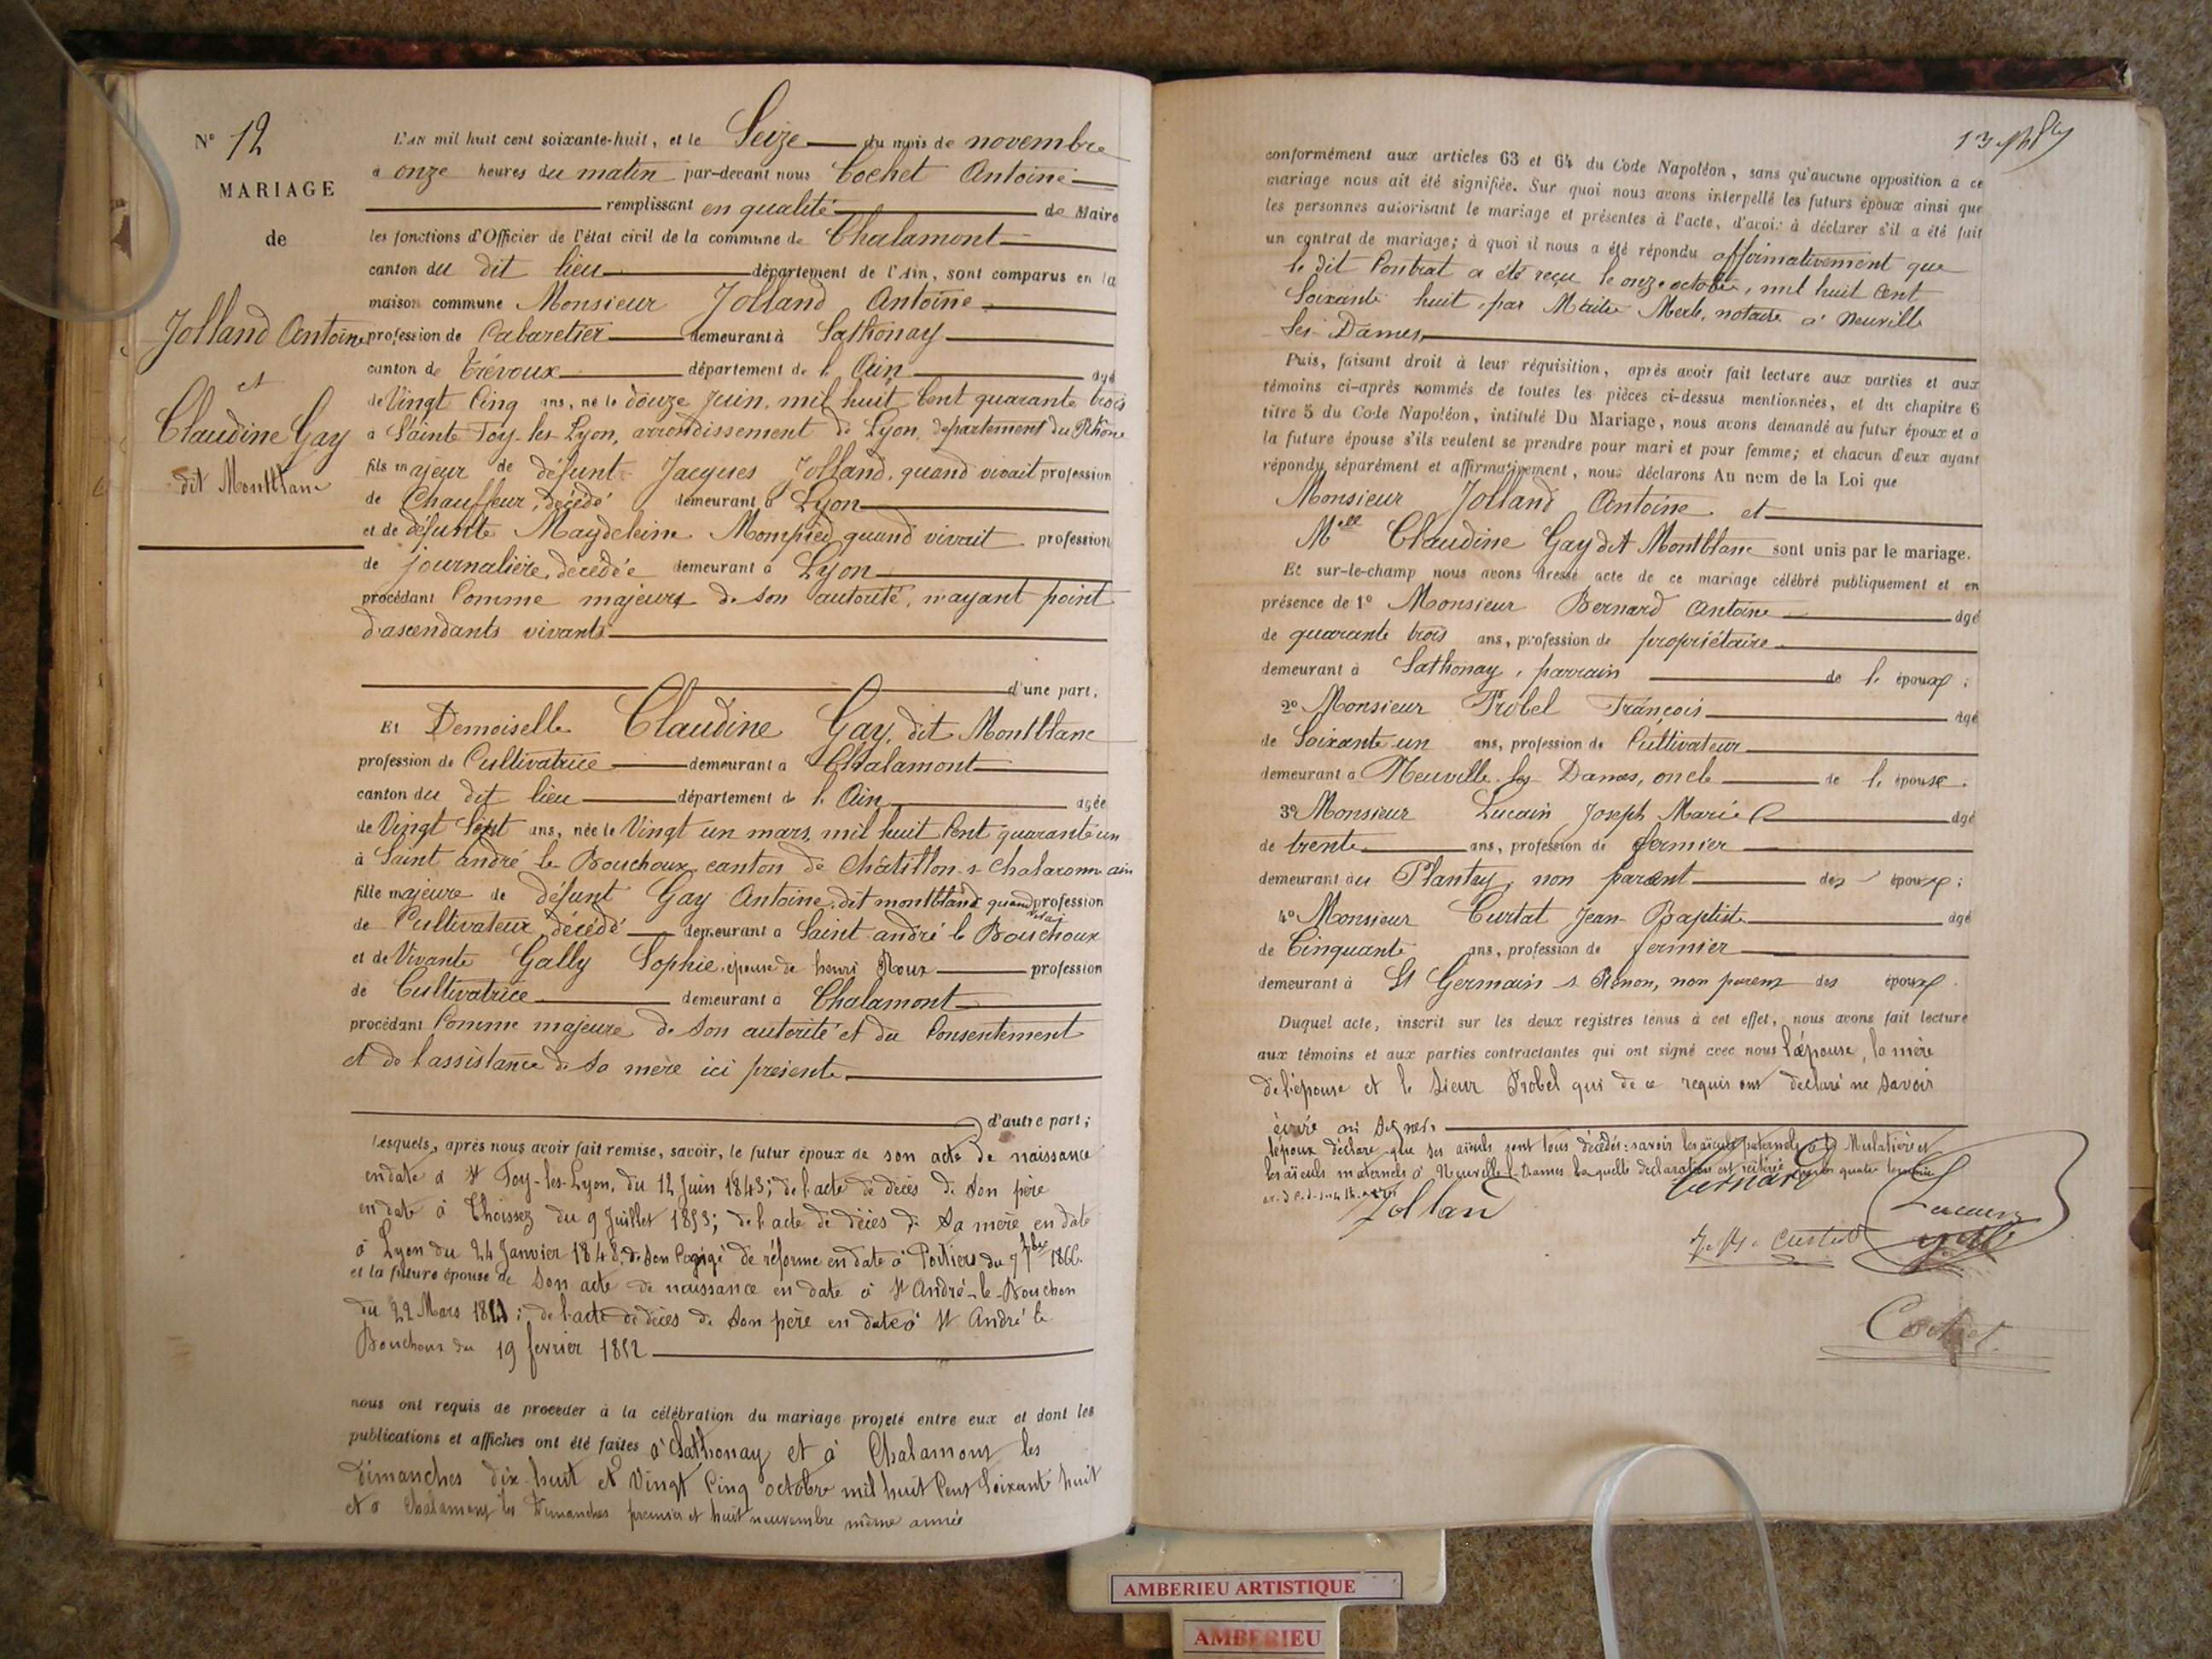 N° 12
MARIAGE
de
Jolland Antoine
et
Claudine Gay
dit Montblanc
L'AN mil huit cent soixante-huit, et le Seize du mois de novembre
à onze heures du matin par-devant nous Cochet Antoine
remplissant en qualité de Maire
les fonctions d'Officier de l'état civil de la commune de Chalamont
canton du dit lieu département de l'Ain, sont comparus en la
maison commune Monsieur Jolland Antoine
profession de Cabaretier demeurant à Sathonay
canton de Trévoux département de l'Ain âgé
de Vingt Cinq ans, né le douze Juin, mil huit Cent quarante trois
à Sainte Foy-les-Lyon, arrondissement de Lyon, département du Rhône
fils majeur de défunt Jacques Jolland, quand vivait profession
de Chauffeur, décédé demeurant à Lyon
et de défunte Maydeleine Mompied quand vivait profession
de journalière, décédée demeurant à Lyon
procédant Comme majeur de son autorité, n'ayant point
d'ascendants vivants
d'une part;
Et Demoiselle Claudine Gay, dit Montblanc
profession de Cultivatrice demeurant à Chalamont
canton du dit lieu département de l'Ain âgée
de Vingt Sept ans, née le Vingt un mars, mil huit Cent quarante un
à Saint André le Bouchoux, canton de Châtillon s Chalaronne ain
fille majeure de défunt Gay Antoine, dit montblanc quand vivait profession
de Cultivateur, décédé demeurant à Saint andré le Bouchoux
et de Vivante Gally Sophie, épouse de henri Roux profession
de Cultivatrice demeurant à Chalamont
procédant Comme majeure de son autorité et du Consentement
et de l'assistance de sa mère ici présente
d'autre part;
Lesquels, après nous avoir fait remise, savoir, le futur époux de son acte de naissance
en date à Ste Foy-les-Lyon, du 12 Juin 1843; de l'acte de décès de son père
en date à Thoissey du 9 Juillet 1853; de l'acte de décès de sa mère en date
à Lyon du 24 Janvier 1848, de son Congé de réforme en date à Poitiers du 7 7bre 1866.
et la future épouse de son acte de naissance en date à St André-le-Bouchon
du 22 Mars 1841; de l'acte de décès de son père en date à St André le
Bouchoux du 19 fevrier 1852
nous ont requis de procéder à la célébration du mariage projeté entre eux et dont les
publications et affiches ont été faites à Sathonay et à Chalamont les
dimanches dix-huit et Vingt Cinq octobre mil huit Cent Soixante huit
et à Chalamont les Dimanches premier et huit nouvembre même année
13
conformément aux articles 63 et 64 du Code Napoléon, sans qu'aucune opposition à ce
mariage nous ait été signifiée. Sur quoi nous avons interpellé les futurs époux ainsi que
les personnes autorisant le mariage et présentes à l'acte, d'avoir à déclarer s'il a été fait
un contrat de mariage; à quoi il nous a été répondu affirmativement que
le dit Contrat a été reçu le onze octobre, mil huit Cent
Soixante huit, par Maitre Merle, notaire à Neuville
les Dames
Puis, faisant droit à leur réquisition, après avoir fait lecture aux parties et aux
témoins ci-après nommés de toutes les pièces ci-dessus mentionnées, et du chapitre 6
titre 5 du Code Napoléon, intitulé Du Mariage, nous avons demandé au futur époux et à
la future épouse s'ils veulent se prendre pour mari et pour femme; et chacun d'eux ayant
répondu séparément et affirmativement, nous déclarons Au nom de la Loi que
Monsieur Jolland Antoine et
Melle Claudine Gay dit Montblanc sont unis par le mariage.
Et sur-le-champ nous avons dressé acte de ce mariage célébré publiquement et en
présence de 1° Monsieur Bernard Antoine âgé
de quarante trois ans, profession de propriétaire
demeurant à Sathonay, parrain de l'époux;
2° Monsieur Probel François âgé
de Soixante un ans, profession de Cultivateur
demeurant à Neuville les Dames, oncle de l'épouse.
3° Monsieur Lucain Joseph Marie âgé
de trente ans, profession de fermier
demeurant au Plantay, non parent des époux;
4° Monsieur Curtat Jean-Baptiste âgé
de Cinquante ans, profession de fermier
demeurant à St Germain s Renon, non parent des époux.
Duquel acte, inscrit sur les deux registres tenus à cet effet, nous avons fait lecture
aux témoins et aux parties contractantes qui ont signé avec nous l'épouse, la mère
de l'épouse et le sieur Probel qui de ce requis ont déclaré ne savoir
écrire ni signer.
l'époux déclare que ses aïeuls sont tous décédés: savoir les aïeuls paternels à Mulatière et
les aïeuls maternels à Neuville-l-Dames laquelle déclaration est réitérée quatre témoins
Jolland
bernard
Lucain
J. B. Curtat
Cochet
AMBERIEU ARTISTIQUE
AMBERIEU